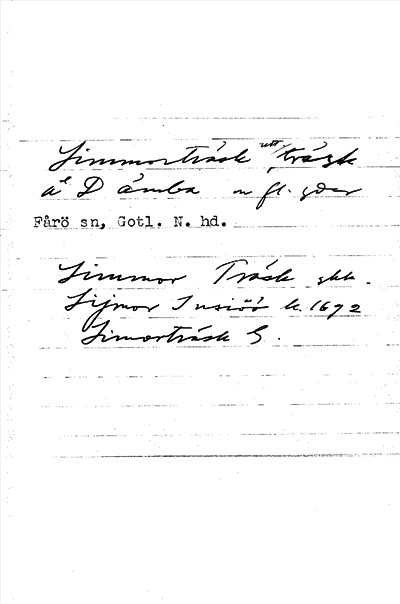 Limmorträsk utt. träsk
å Dämba m fl. gdar
Fårö sn, Gotl. N. hd.
Limmor Träsk skk.
Lijmor Insiöö k. 1692
Limorträsk G.